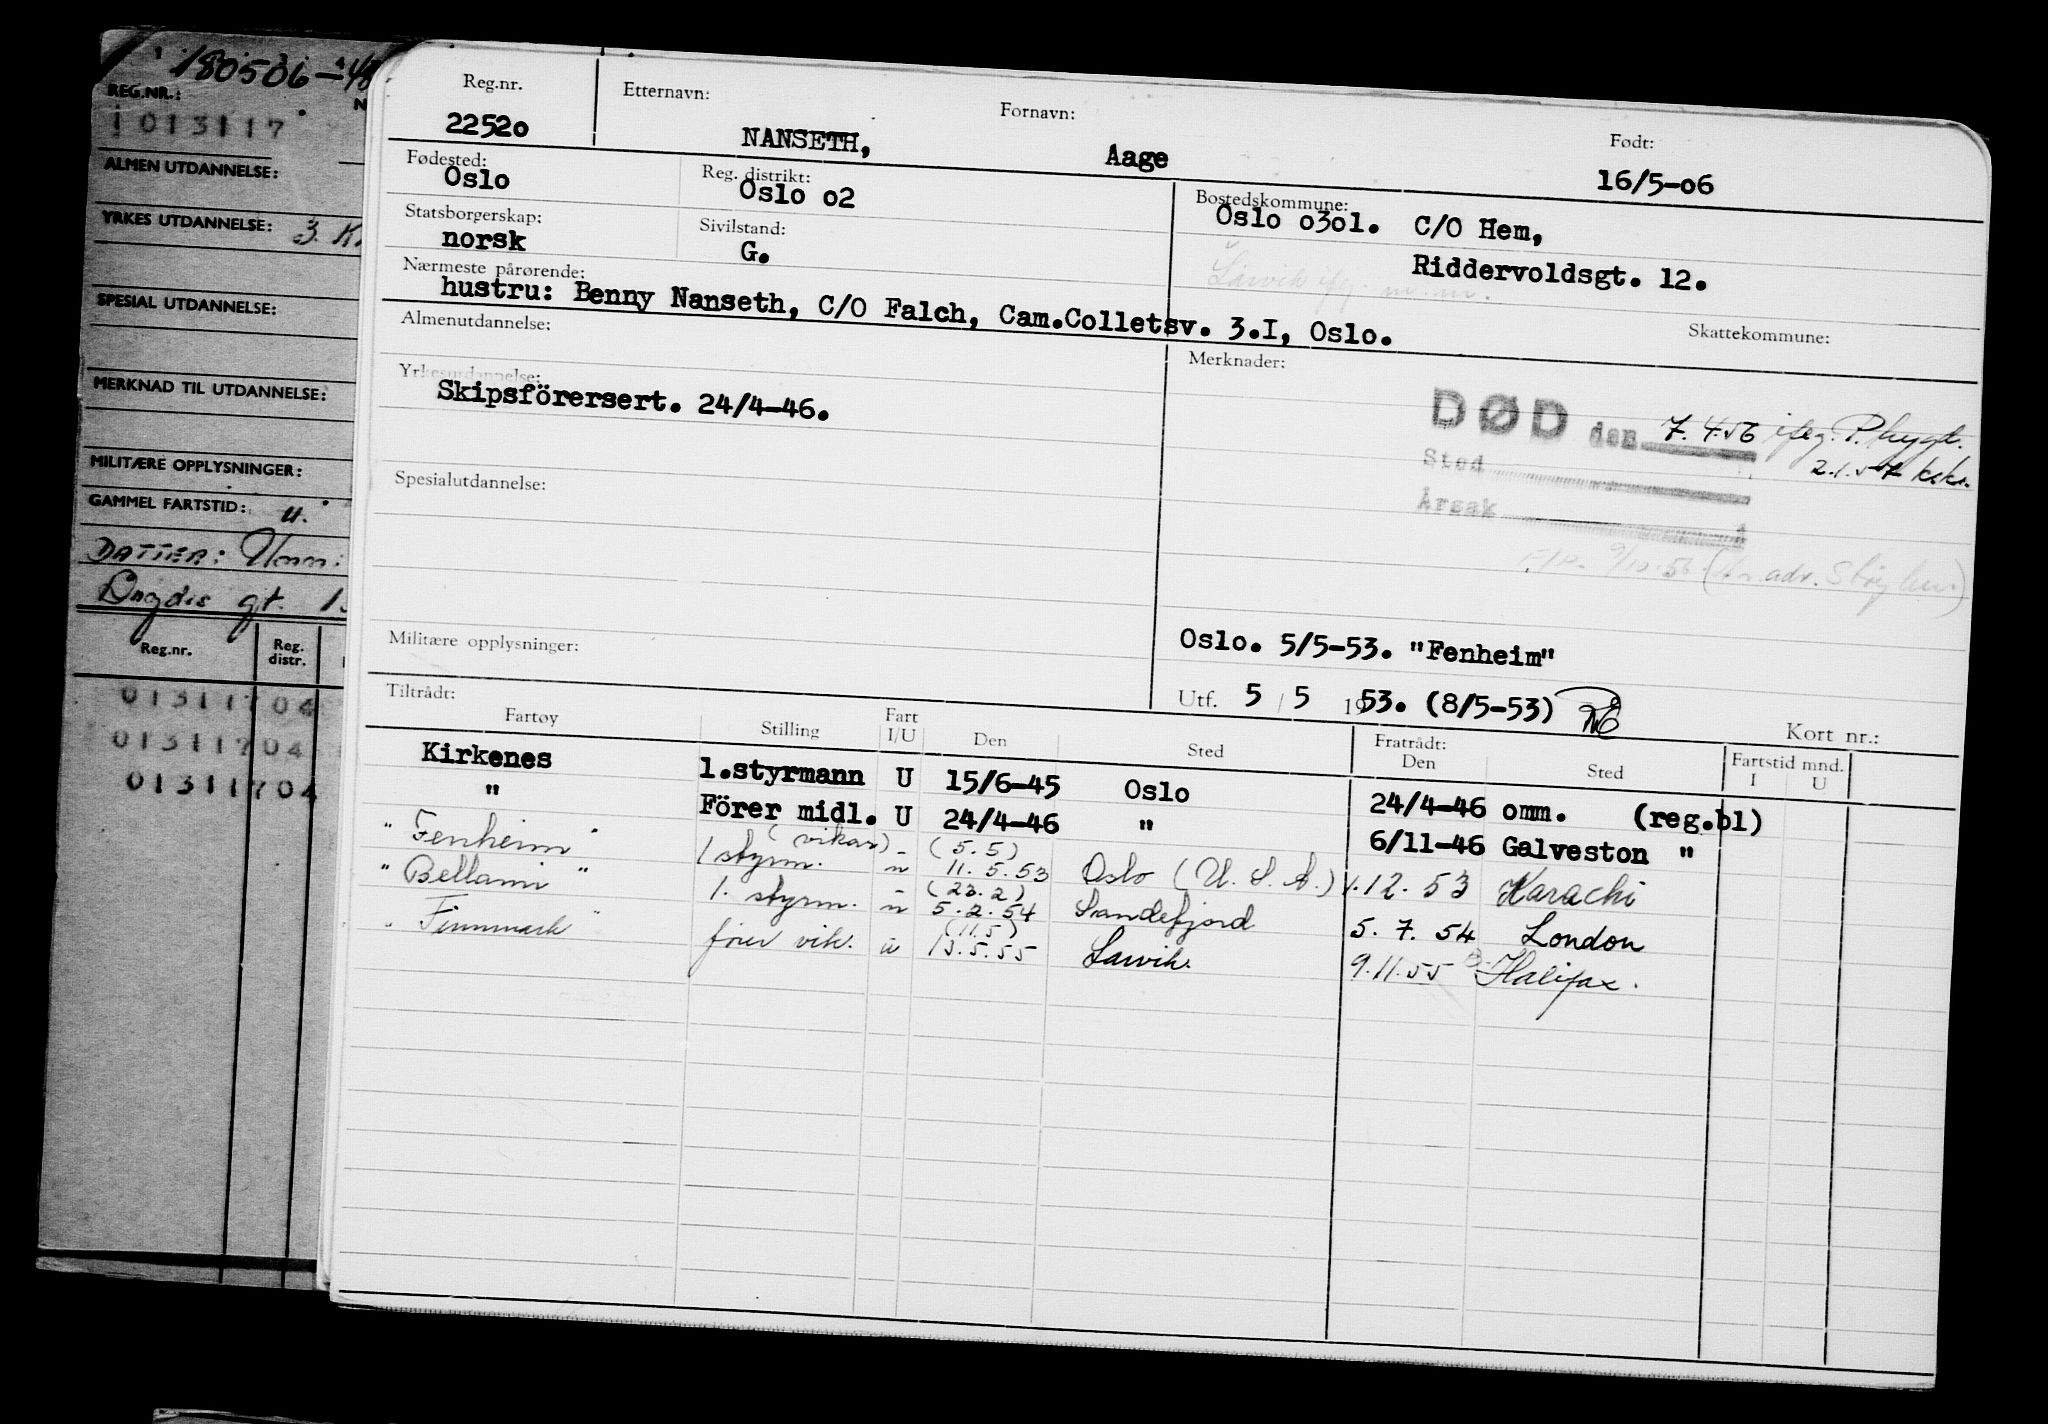 180506-48
REG.NR.:
1013117
ALMEN UTDANNELSE:
YRKES UTDANNELSE: 3.
SPESIAL UTDANNELSE:
MERKNAD TIL UTDANNELSE:
MILITÆRE OPPLYSNINGER:
GAMMEL FARTSTID: u.
DATTER:
gt.
Reg.nr. Reg. distr.
01311704
01311704
01311704
Reg.nr. Etternavn: Fornavn: Født:
22520 NANSETH, Aage 16/5-06
Fødested: Reg. distrikt: Bostedskommune:
Oslo Oslo o2 Oslo o3ol. C/O Hem,
Statsborgerskap: Sivilstand:
norsk G. Riddervoldsgt. 12.
Nærmeste pårørende: Larvik
hustru: Benny Nanseth, C/O Falch, Cam.Colletsv. 3.I, Oslo.
Skattekommune:
Almenutdannelse: Merknader:
Yrkesutdannelse:
Skipsförersert. 24/4-46.
DØD den 7.4.56 ifeg.
2.1.57
Sted
Årsak
Spesialutdannelse:
9/10.56 adv.
Militære opplysninger: Oslo. 5/5-53. "Fenheim"
Utf. 5 / 5 1953. (8/5-53)
Kort nr.:
Tiltrådt: Fratrådt: Fartstid mnd.
Fartøy Stilling Fart I/U Den Sted Den Sted I U
Kirkenes 1.styrmann U 15/6-45 Oslo 24/4-46 omm. (reg.bl)
" Förer midl. U 24/4-46 " 6/11-46 Galveston "
(vikar) (5.5)
"Fenheim" 1 styrm. u 11.5.53 Oslo (U.S.A.) 1.12.53 Karachi
(23.2)
"Bellami" 1. styrm. u 5.2.54 Sandefjord 5.7.54 London
(11.5)
"Finnmark" fører vik. u 13.5.55 Larvik. 9.11.55 Halifax.